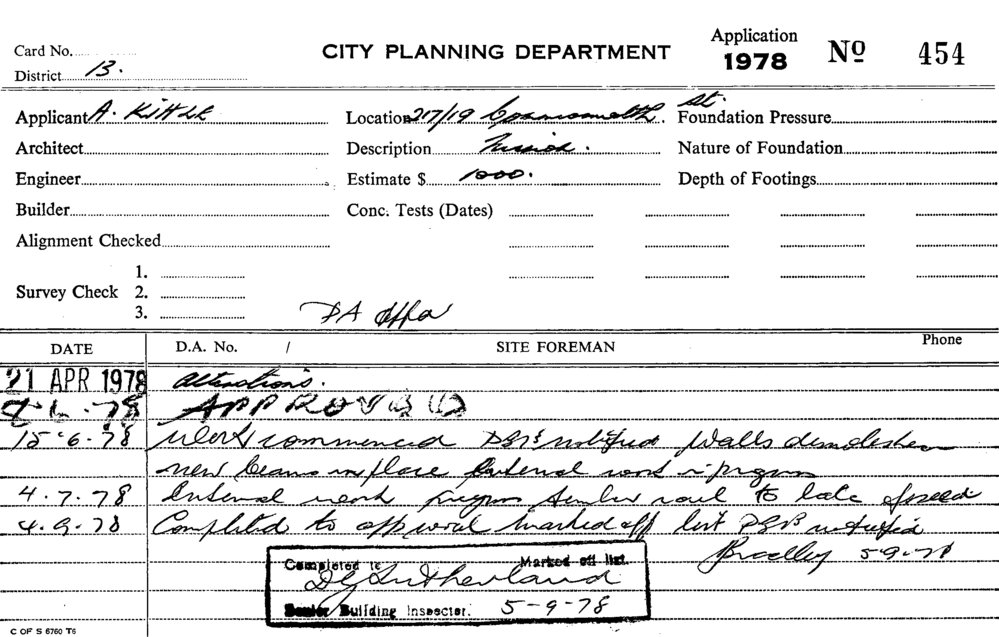 Application
Card No. CITY PLANNING DEPARTMENT 1978 No 454
District 13.
Applicant A. Kittle Location 217/19 Commonwealth St. Foundation Pressure
Architect Description Nature of Foundation
Engineer Estimate $ 1000. Depth of Footings
Builder Conc. Tests (Dates)
Alignment Checked
1.
Survey Check 2.
3. DA
DATE D.A. No. / SITE FOREMAN Phone
21 APR 1978 alterations.
78 APPROVED
15.6.78 Work commenced notified Walls demolished
new beams in place Internal work in progress
4.7.78 Internal work progress timber to
4.9.78 Completed to approval marked off list notified
Bradley 5-9-78
Completed to Marked off list.
DG Sutherland
Senior Building Inspector. 5-9-78
C OF S 6760 T6